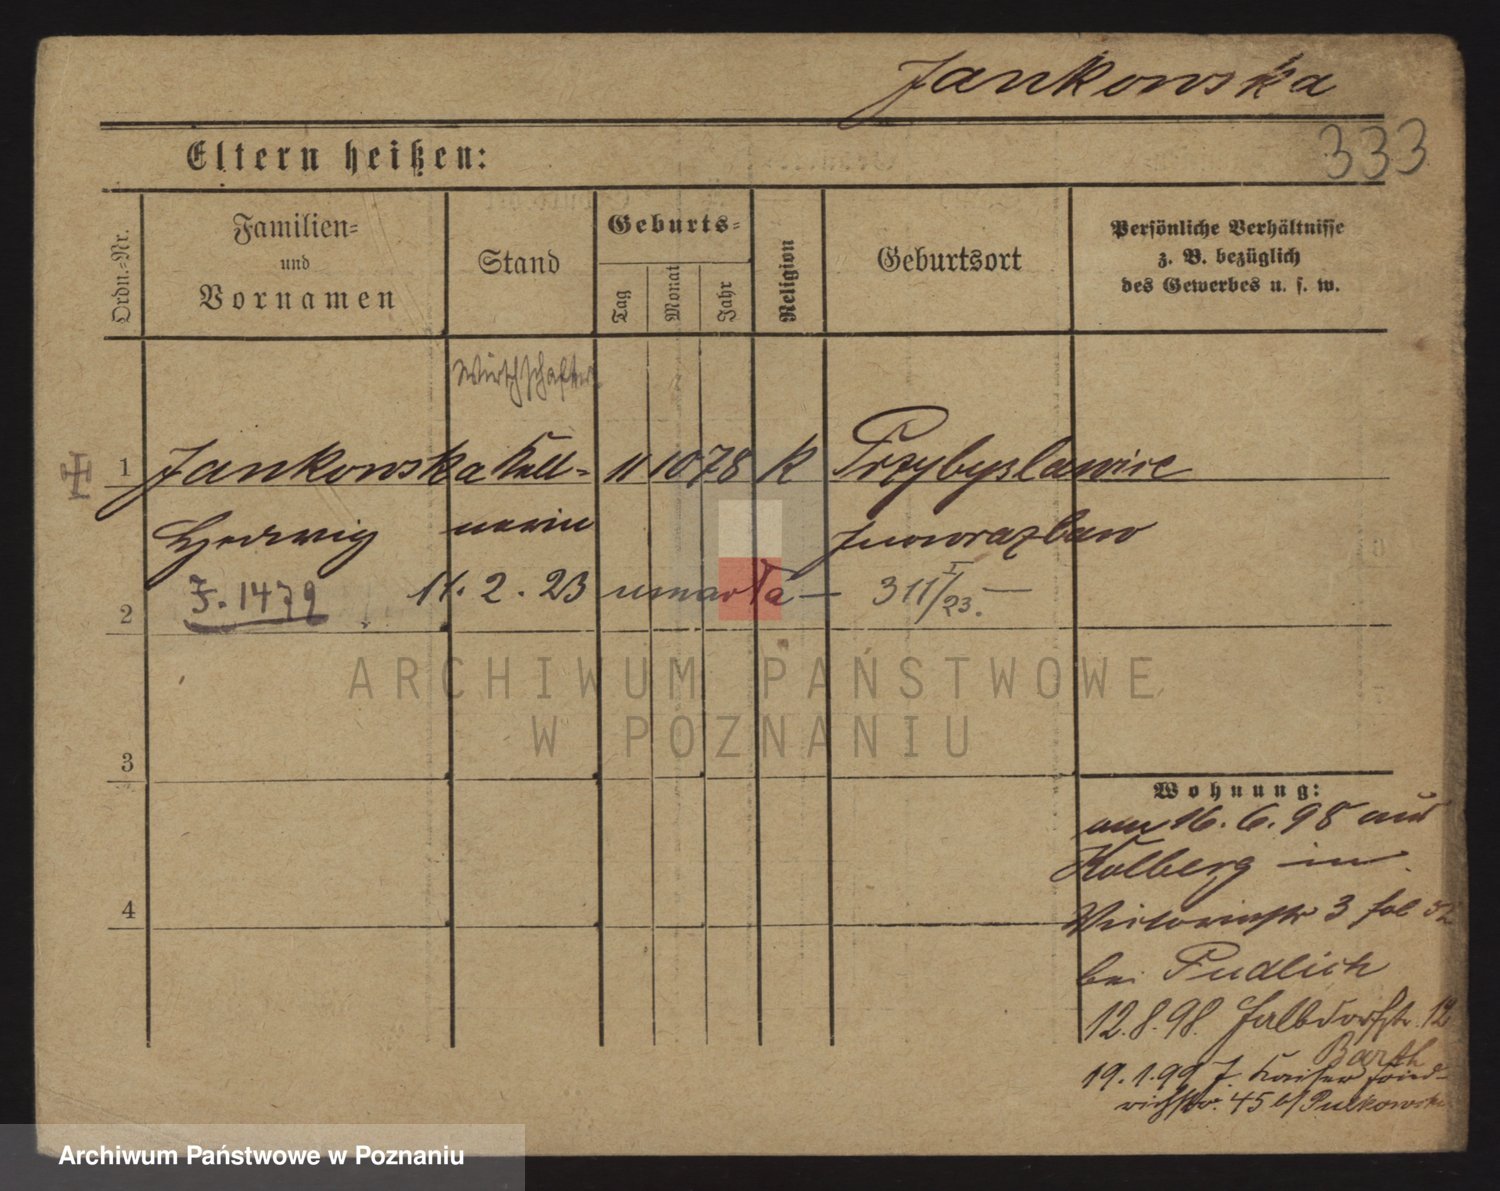 Jankowska
333
Eltern heißen:
Ordn.-Nr.
Familien-
und
Vornamen
Stand
Geburts-
Tag
Monat
Jahr
Religion
Geburtsort
Persönliche Verhältnisse
z. B. bezüglich
des Gewerbes u. s. w.
Wirthschafter
1 Jankowska Kell- 11 10 78 K Przybyslawice
Hedwig nerin Inowrazlaw
2 J. 1479 11. 2. 23 umarła — 311 I/23. —
ARCHIWUM PAŃSTWOWE
W POZNANIU
3
Wohnung:
am 16. 6. 98 aus
Kolberg in
4 Victoriastr 3
bei Pudlich
12. 8. 98. 12
Barth
19. 1. 99 J. Kaiser Fried-
richstr. 45 b/ Pulkowski
Archiwum Państwowe w Poznaniu